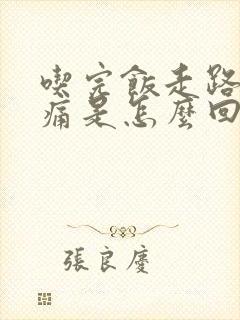 喫完飯走路
痛是怎麼回
張良慶